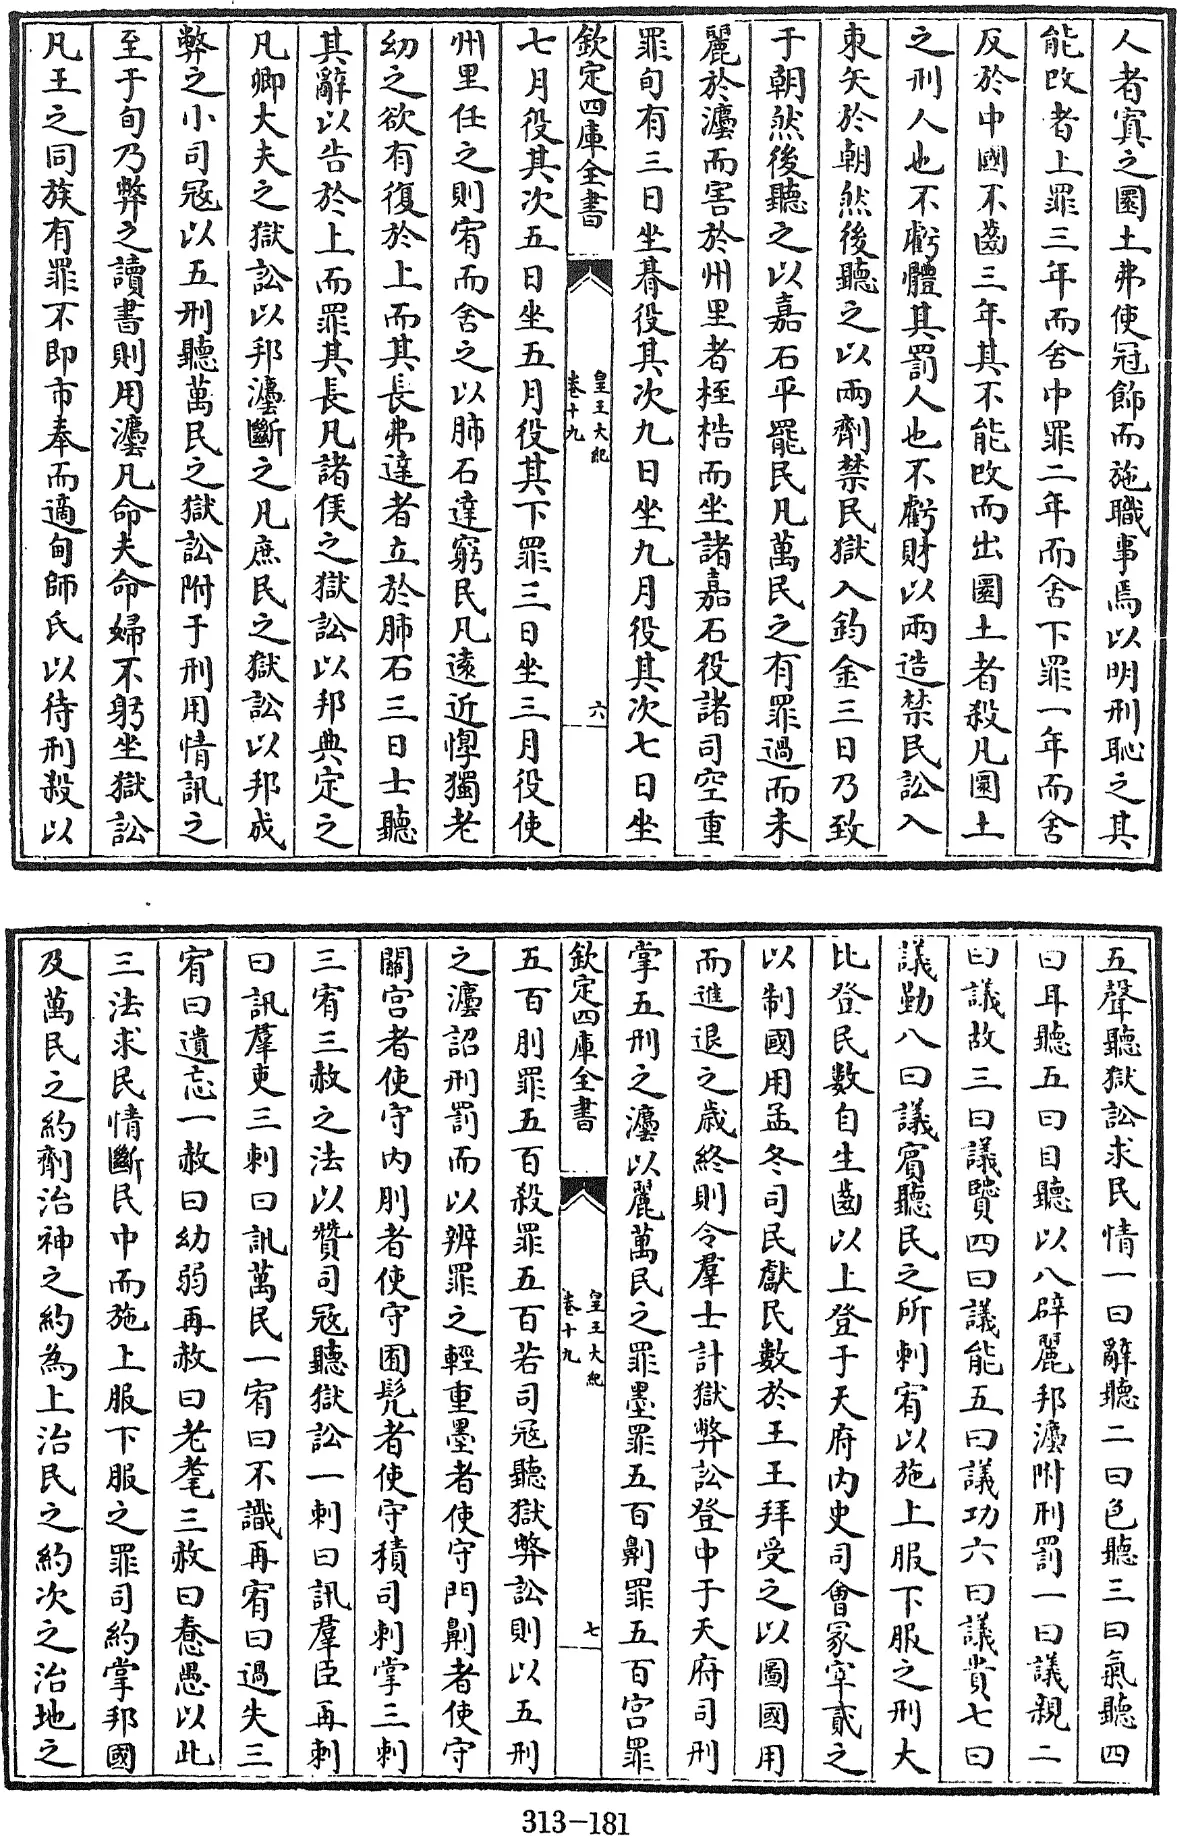 人者寘之圜土弗使冠飾而施職事焉以明刑恥之其
能改者上罪三年而舍中罪二年而舍下罪一年而舍
反於中國不齒三年其不能改而出圜土者殺凡圜土
之刑人也不虧體其罰人也不虧財以兩造禁民訟入
束矢於朝然後聽之以兩劑禁民獄入鈞金三日乃致
于朝然後聽之以嘉石平罷民凡萬民之有罪過而未
麗於灋而害於州里者桎梏而坐諸嘉石役諸司空重
罪旬有三日坐朞役其次九日坐九月役其次七日坐
欽定四庫全書
皇王大紀
卷十九
六
七月役其次五日坐五月役其下罪三日坐三月役使
州里任之則宥而舍之以肺石達窮民凡遠近惸獨老
幼之欲有復於上而其長弗達者立於肺石三日士聽
其辭以告於上而罪其長凡諸侯之獄訟以邦典定之
凡卿大夫之獄訟以邦灋斷之凡庶民之獄訟以邦成
弊之小司冦以五刑聽萬民之獄訟附于刑用情訊之
至于旬乃弊之讀書則用灋凡命夫命婦不躬坐獄訟
凡王之同族有罪不即市奉而適甸師氏以待刑殺以
五聲聽獄訟求民情一曰辭聽二曰色聽三曰氣聽四
曰耳聽五曰目聽以八辟麗邦灋附刑罰一曰議親二
曰議故三曰議賢四曰議能五曰議功六曰議貴七曰
議勤八曰議賓聽民之所刺宥以施上服下服之刑大
比登民數自生齒以上登于天府内史司會冢宰貳之
以制國用孟冬司民獻民數於王王拜受之以圖國用
而進退之歲終則令羣士計獄弊訟登中于天府司刑
掌五刑之灋以麗萬民之罪墨罪五百劓罪五百宫罪
欽定四庫全書
皇王大紀
卷十九
七
五百刖罪五百殺罪五百若司冦聽獄弊訟則以五刑
之灋詔刑罰而以辨罪之輕重墨者使守門劓者使守
關宫者使守内刖者使守囿髡者使守積司刺掌三刺
三宥三赦之法以贊司冦聽獄訟一刺曰訊羣臣再刺
曰訊羣吏三刺曰訊萬民一宥曰不識再宥曰過失三
宥曰遺忘一赦曰幼弱再赦曰老耄三赦曰惷愚以此
三法求民情斷民中而施上服下服之罪司約掌邦國
及萬民之約劑治神之約為上治民之約次之治地之
313-181